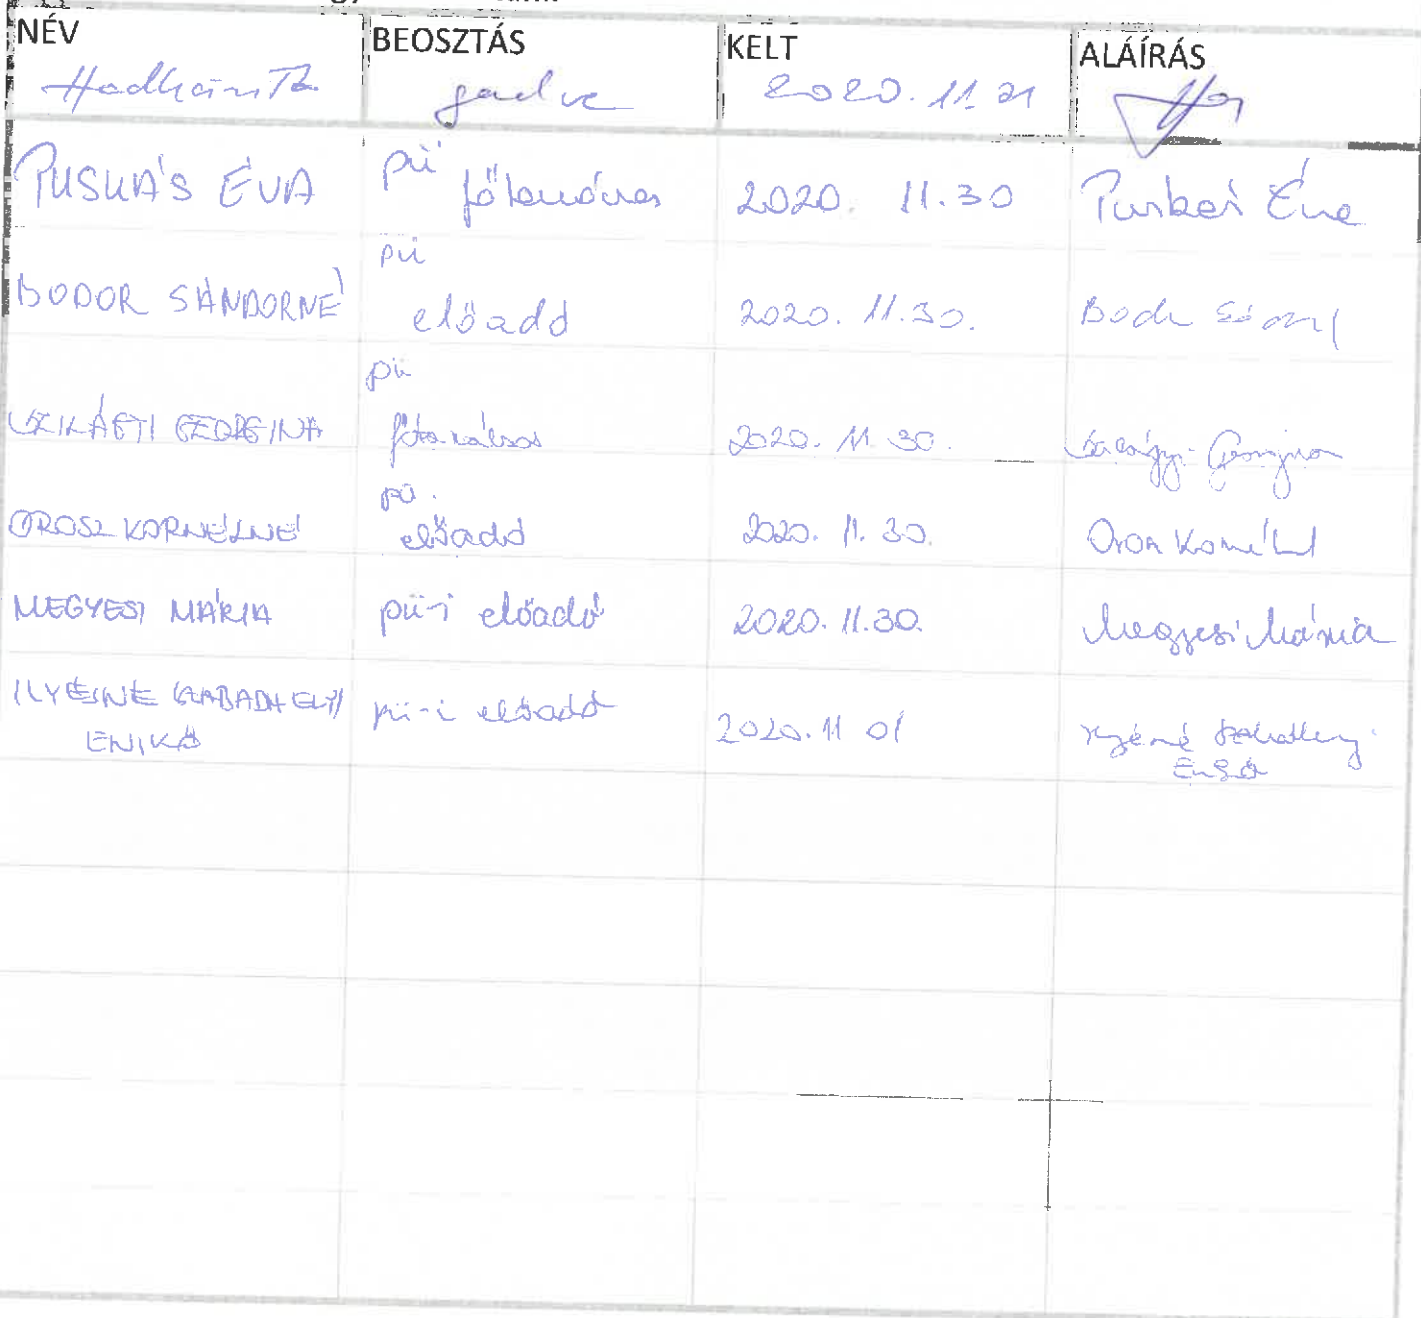 NÉV BEOSZTÁS KELT ALÁÍRÁS
2020. 11. 21
PUSKÁS ÉVA pü főtanácsos 2020. 11.30 Puskás Éva
BODOR SÁNDORNÉ pü előadó 2020. 11.30.
SZILÁGYI GEORGINA pü főtanácsos 2020. 11. 30. Szilágyi Georgina
OROSZ KORNÉLNÉ pü. előadó 2020. 11. 30. Orosz Kornélné
MEGYESI MÁRIA pü-i előadó 2020. 11.30. Megyesi Mária
ILYÉSNÉ SZABADHELYI pü-i előadó 2020. 11 01
ENIKŐ